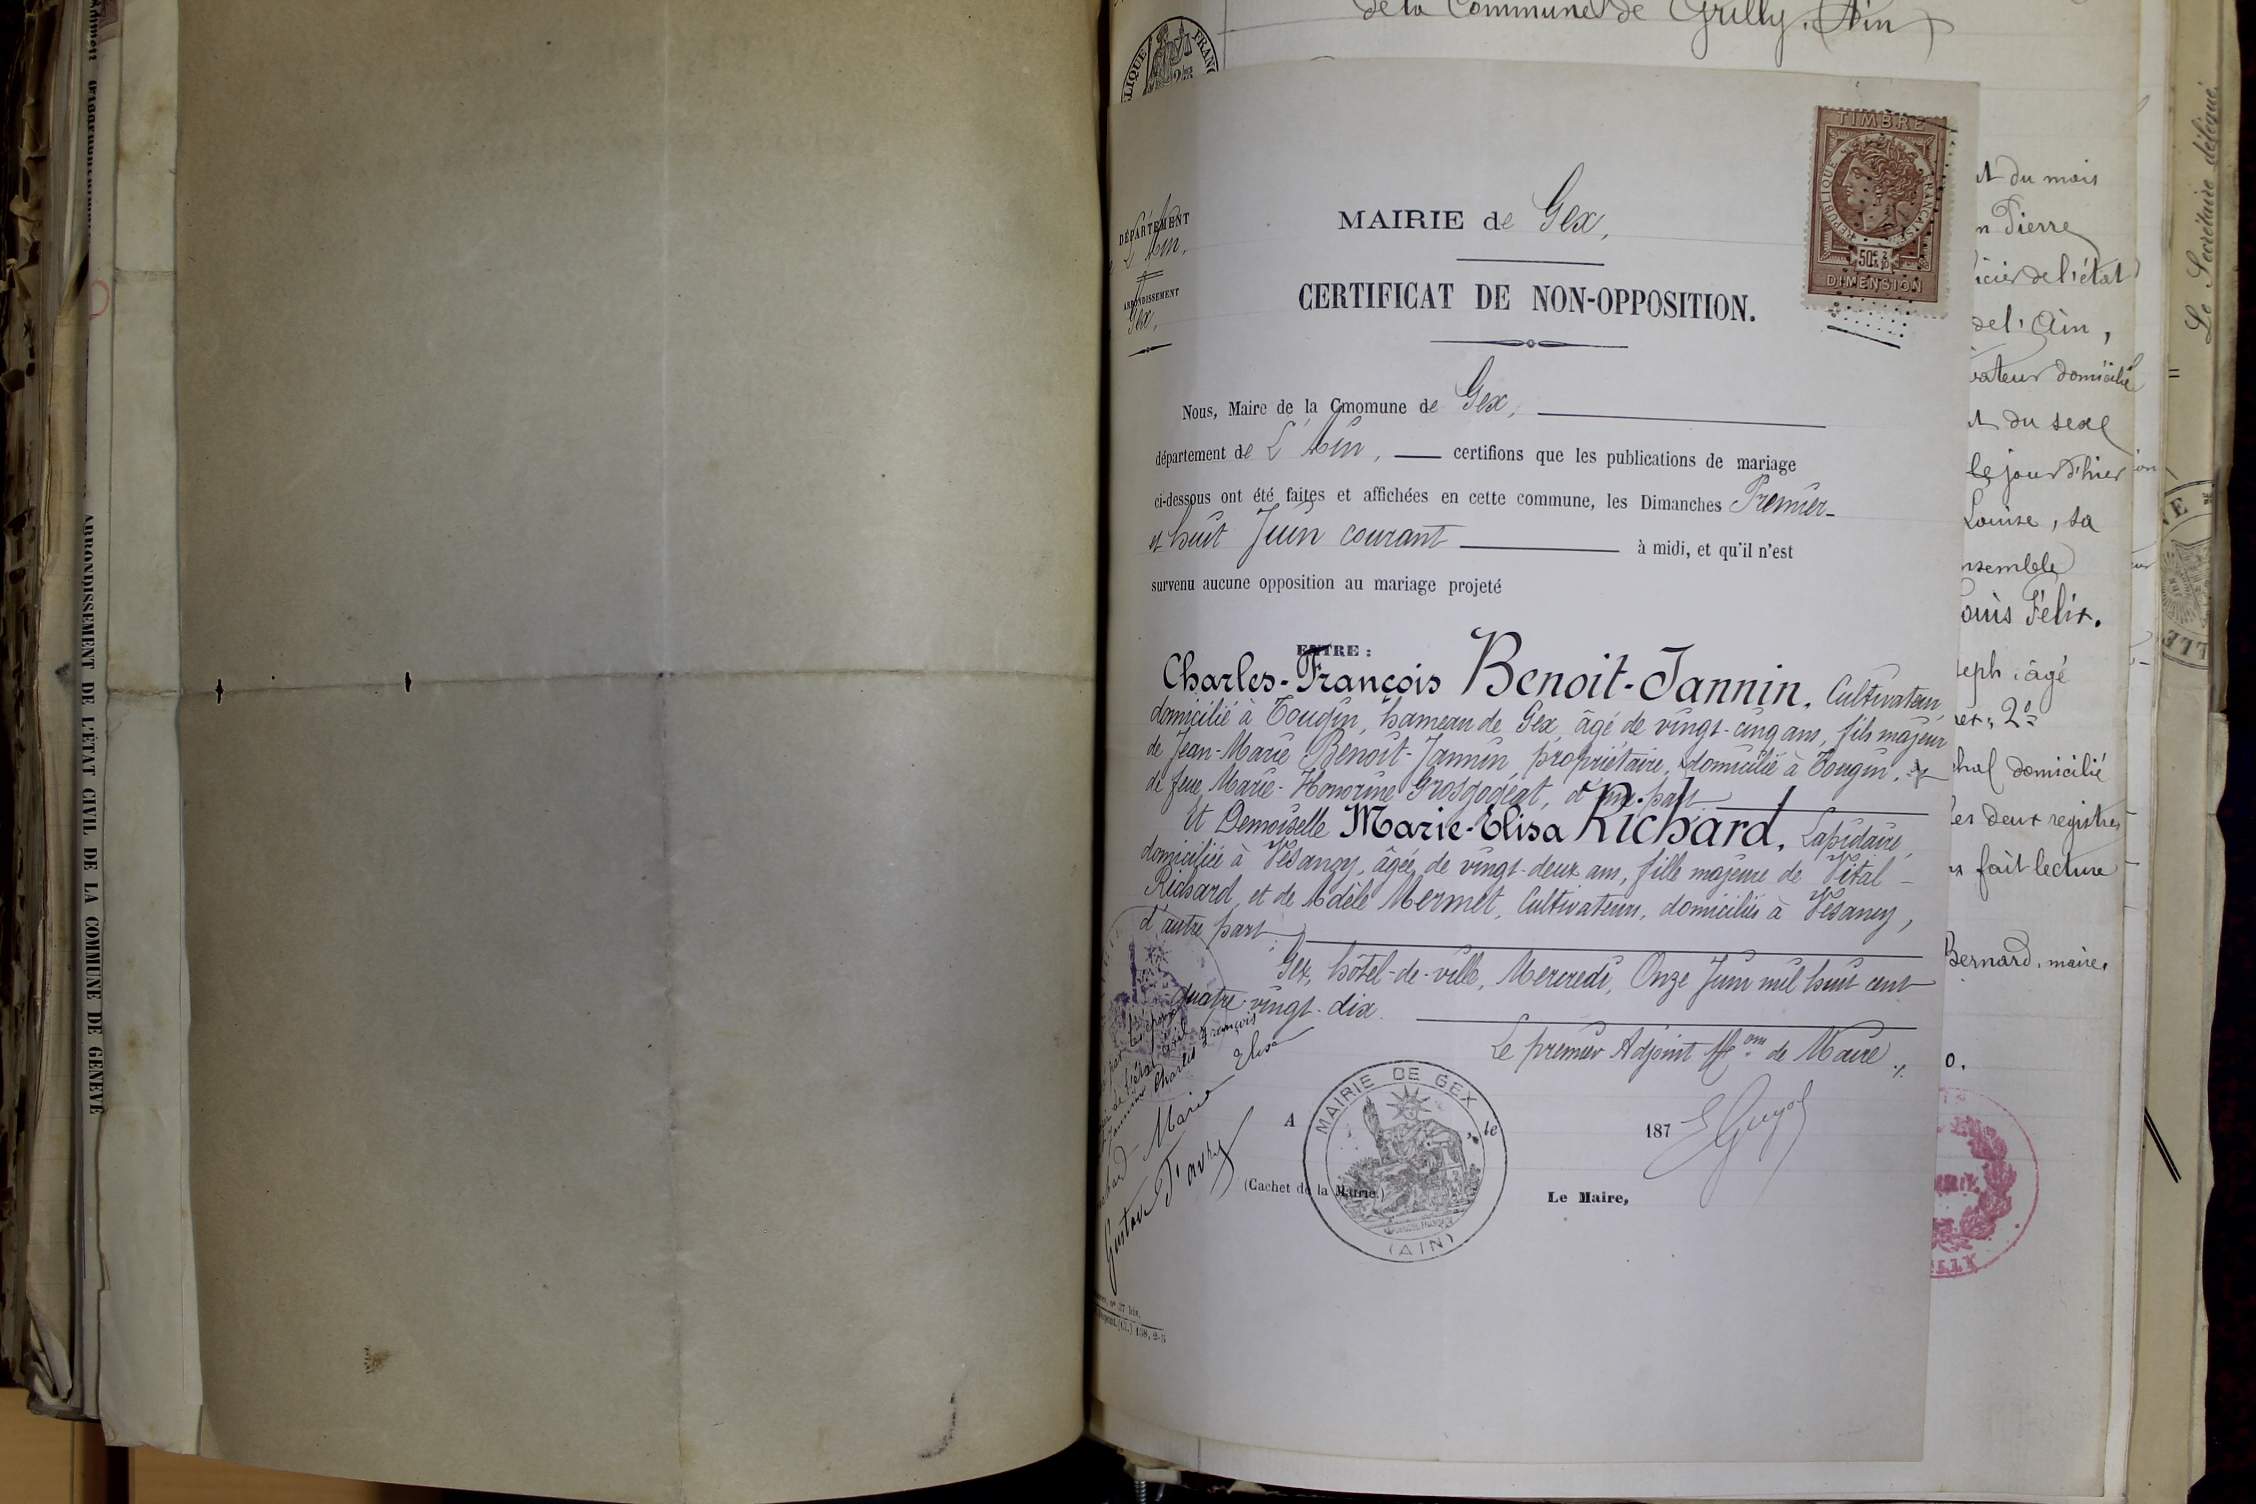 ARRONDISSEMENT DE L'ÉTAT CIVIL DE LA COMMUNE DE GENÈVE
de la Commune de Grilly (Ain)
DÉPARTEMENT
L'Ain,
ARRONDISSEMENT
Gex,
MAIRIE de Gex,
TIMBRE
RÉPUBLIQUE FRANÇAISE
50c
DIMENSION
CERTIFICAT DE NON-OPPOSITION.
Nous, Maire de la Cmomune de Gex,
département de L'Ain, certifions que les publications de mariage
ci-dessous ont été faites et affichées en cette commune, les Dimanches Premier
et huit Juin courant à midi, et qu'il n'est
survenu aucune opposition au mariage projeté
ENTRE :
Charles-François Benoit-Jannin, Cultivateur,
domicilié à Tougin, hameau de Gex, âgé de vingt-cinq ans, fils majeur
de Jean-Marie Benoit-Jannin, propriétaire, domicilié à Tougin, et
de feue Marie-Honorine Grosgogeat, d'une part
Et Demoiselle Marie-Elisa Richard, Lapidaire,
domiciliée à Vésancy, âgée de vingt-deux ans, fille majeure de Vital
Richard et de Adèle Mermet, Cultivateurs, domiciliés à Vésancy,
d'autre part;
Gex, hôtel-de-ville, Mercredi, Onze Juin mil huit cent
quatre-vingt-dix.
Le premier Adjoint ff.ons de Maire,
A le 187
MAIRIE DE GEX
(AIN)
(Cachet de la Mairie.)
Le Maire,
Charles François
Marie Elisa
Gustave
du mois
Pierre
de l'état
de l'Ain,
domicilié
du sexe
le jour d'hier
Louise, sa
Louis Félix.
âgé
2º
domicilié
les deux registres
fait lecture
Bernard, maire.
Le Secrétaire délégué.